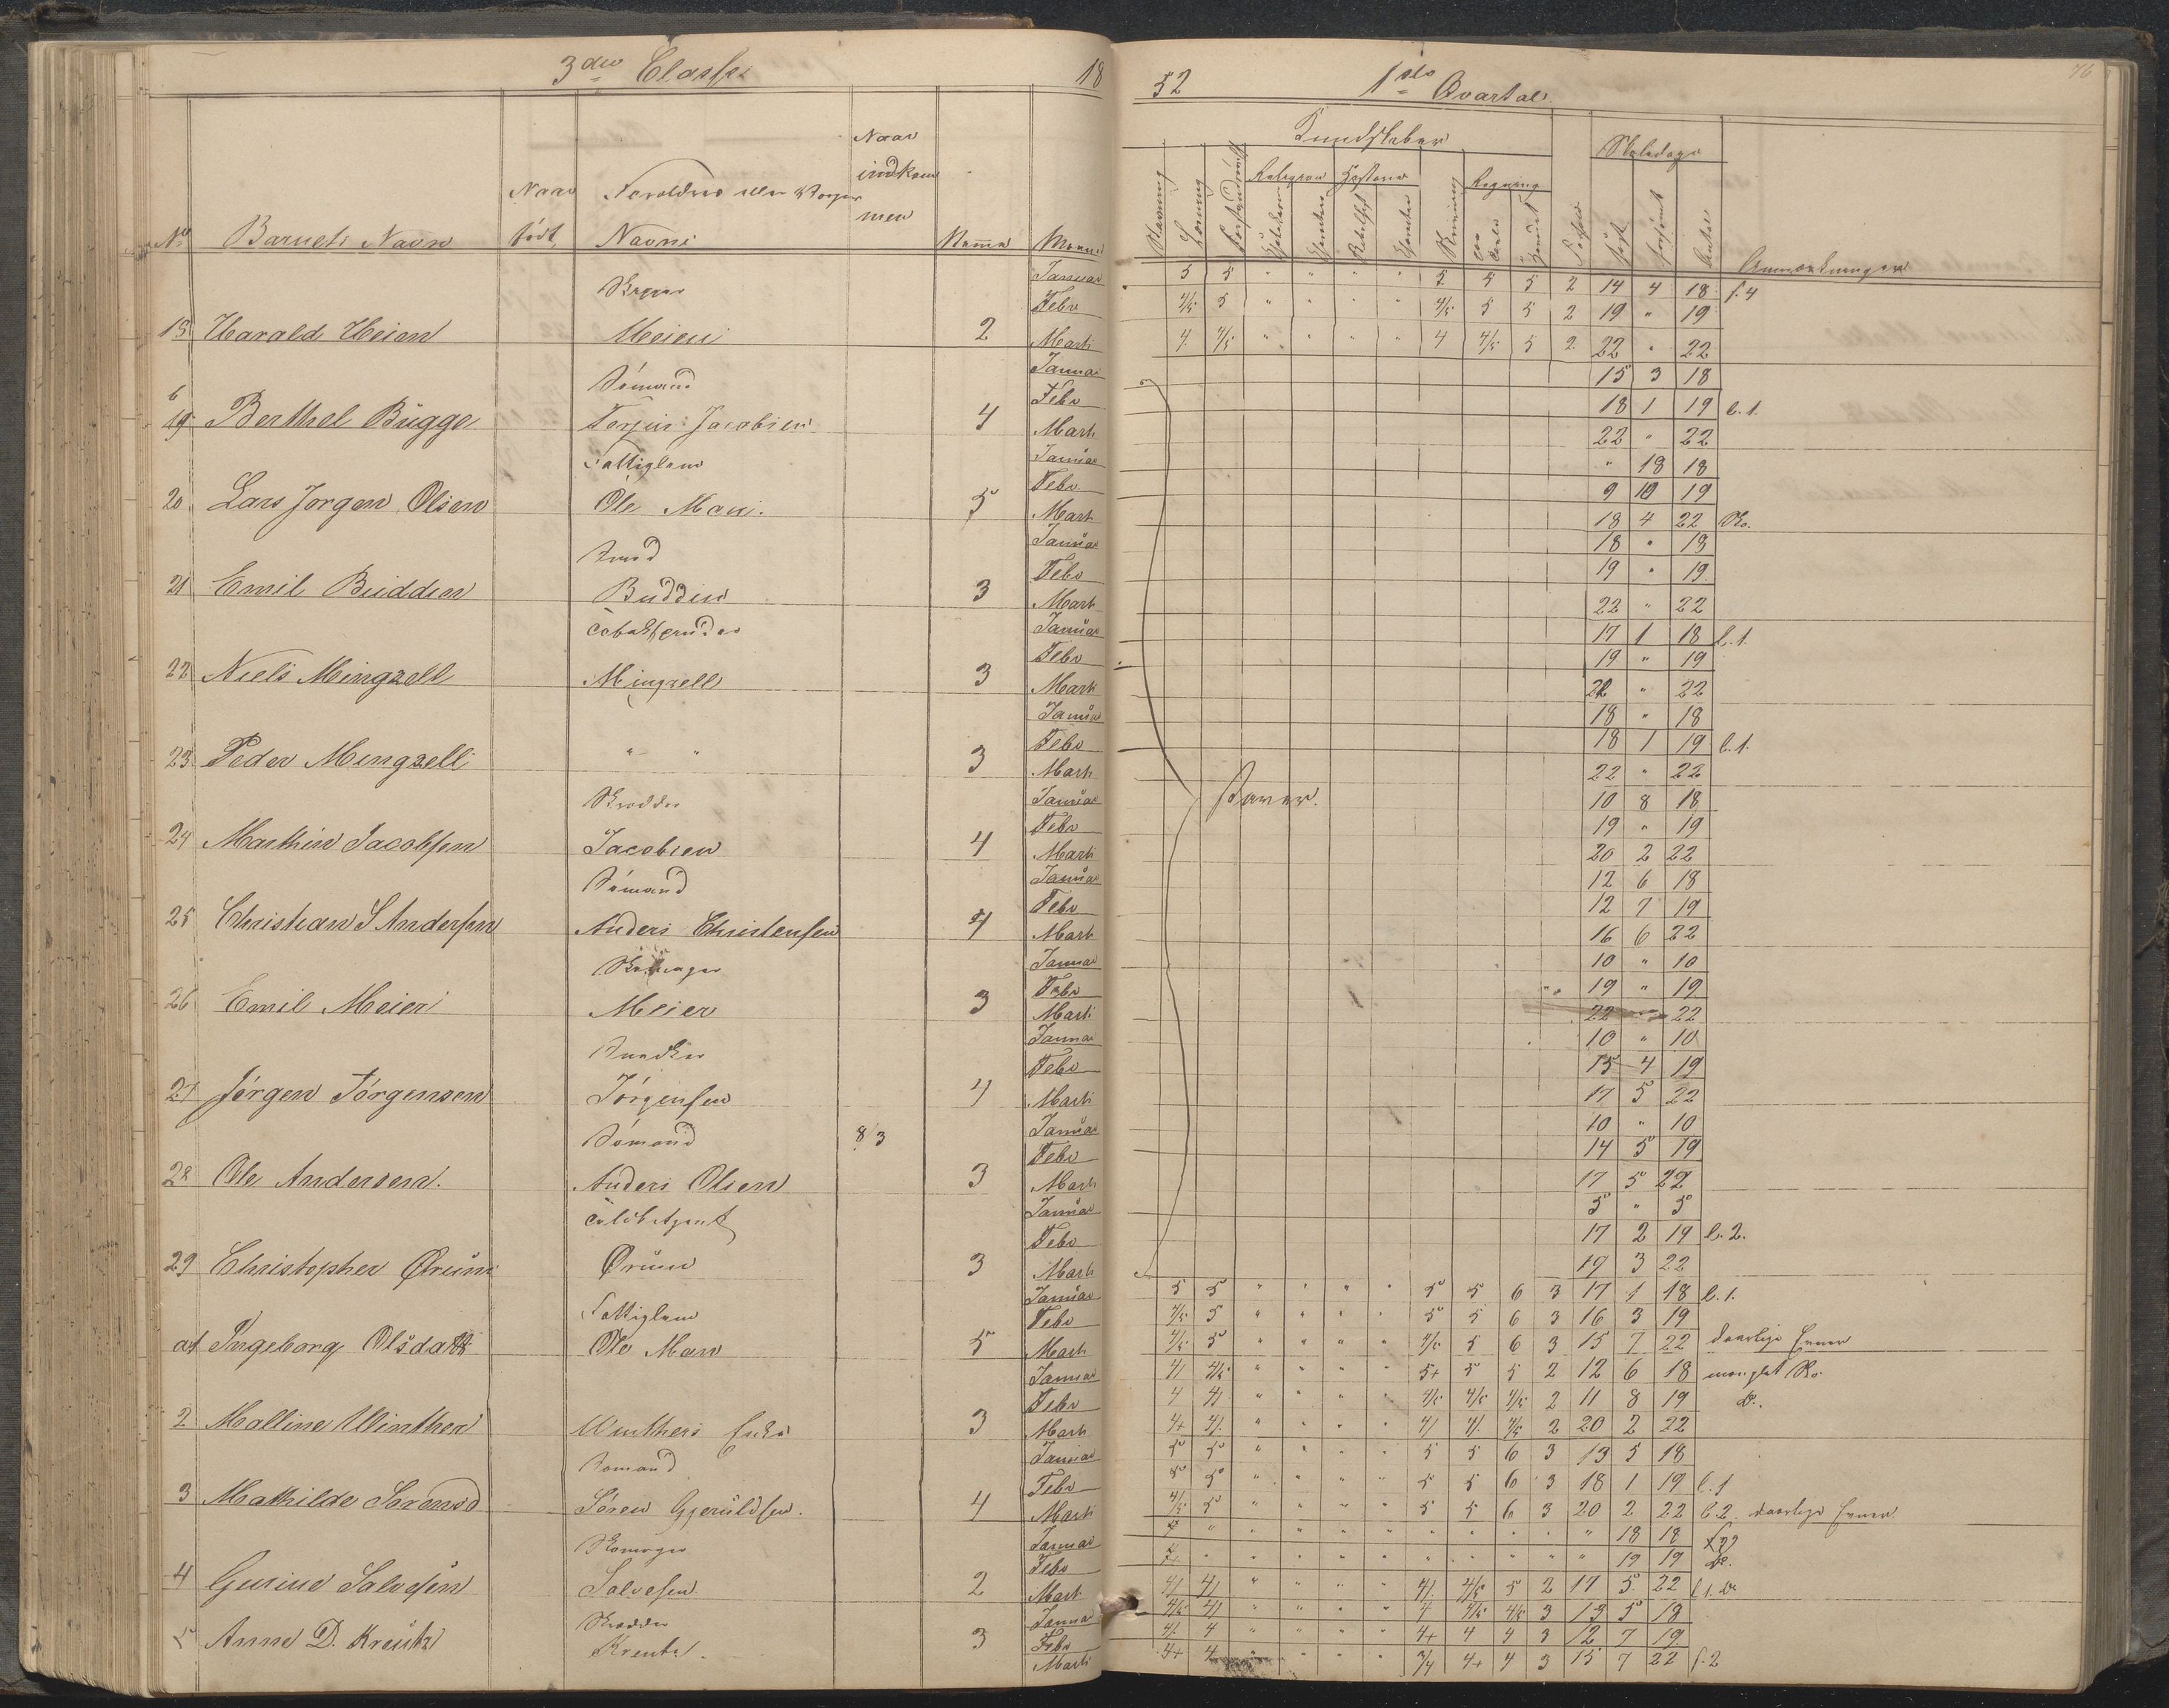 3die Classe 1852 1ste Qvartal
76
No Barnets Navn
Naar født
Forældres eller Navne
Naar indkommen
Kundskaber
Skoledage
Stavning Læsning Religion Historie Skrivning Regning
Anmærkninger
Januar 5 5 " " " " 5 5 5 2 14 4 18 f. 4
Febr 4/5 5 " " " " 4/5 5 5 2 19 " 19
18 Harald Heien Meien 2 Marti 4 4/5 " " " " 4 4/5 5 2 22 " 22
Sömand Januar 15 3 18
Febr 18 1 19 l. 1.
19 Berthel Bügge Terjus Jacobsen 4 Marti 22 " 22
Fattiglem Januar " 18 18
Febr 9 10 19
20 Lars Jörgen Olsen Ole Moe 5 Marti 18 4 22
Januar 18 " 18
Febr 19 " 19
21 Emil Budden Budden 3 Marti 22 " 22
Januar 17 1 18 l. 1.
Febr 19 " 19
22 Niels Mingzell Mingzell 3 Marti 22 " 22
Januar 18 " 18
Febr 18 1 19 l. 1.
23 Peder Mingzell " " 3 Marti 22 " 22
Skrædder Januar 10 8 18
Febr 19 " 19
24 Marthin Jacobsen Jacobsen 4 Marti 20 2 22
Sömand Januar 12 6 18
Febr 12 7 19
25 Christian S Andersen Anders Christensen 4 Marti 16 6 22
Januar 10 " 10
Febr 19 " 19
26 Emil Meier Meier 3 Marti 22 " 22
Januar 10 " 10
Febr 15 4 19
27 Jörgen Jörgensen Jörgensen 4 Marti 17 5 22
Sömand 8/3 Januar 10 " 10
Febr 14 5 19
28 Ole Andersen. Anders Olsen 3 Marti 17 5 22
Januar 5 " 5
Febr 17 2 19 l. 2.
29 Christopher Örum Örum 3 Marti 19 3 22
Fattiglem Januar 5 5 " " " " 5 5 6 3 17 1 18 l. 1.
Febr 4/5 5 " " " " 5 5 6 3 16 3 19
Ingeborg Olsdatter Ole Moe 5 Marti 4/5 5 " " " " 4/5 5 6 3 15 7 22 daarlige Evner
Januar 4 4/5 " " " " 5+ 5 5 2 12 6 18
Febr 4 4 " " " " 4/5 4/5 4/5 2 11 8 19 do.
2 Malline Winther Winthers Enke 3 Marti 4+ 4 " " " " 4 4 4/5 2 20 2 22
Sömand Januar 5 5 " " " " 5 5 6 3 13 5 18
Febr 5 5 " " " " 5 5 6 3 18 1 19 l. 1
3 Mathilde Sörensd Sören Gjeruldsen. 4 Marti 4/5 5 " " " " 5 5 6 3 20 2 22 l. 2. daarlige Evner.
Skomager Januar " " " " " " " " " 18 18 syg
Febr " " " " " " " " " 19 19 do.
4 Gurine Salvesen Salvesen 2 Marti 4 4 " " " " 4 4/5 5 2 17 5 22
Skrædder Januar 4/5 4 " " " " 4 4/5 4/5 3 13 5 18
Febr 4 4 " " " " 4+ 4 4 3 12 7 19
5 Anne D. Kreutz Kreutz. 3 Marti 4+ 4 " " " " 3/4 4+ 4 3 15 7 22 f. 2